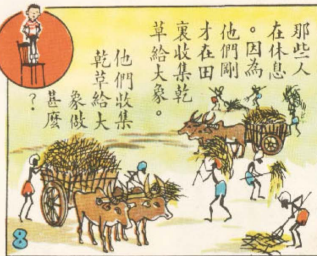 那些人
在休息
。因為
他們剛
才在田
裏收集乾
草給大象。
他們收集
乾草給大
象做
甚麼
?
8